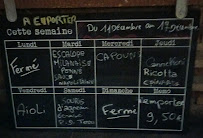 A EMPORTER
Cette semaine
Du 11 Décembre au 17 Décembre
Lundi
Mardi
Mercredi
Jeudi
Fermé
ESCALOPE
MILANAISE
PENNE
NAPOLITAINE
CAPOUN
Cannelloni
Ricotta
EPINARDS
Vendredi
Samedi
Dimanche
Memo
Aïoli
SOURIS
d'agneau
Fermé
emporter
9,50€